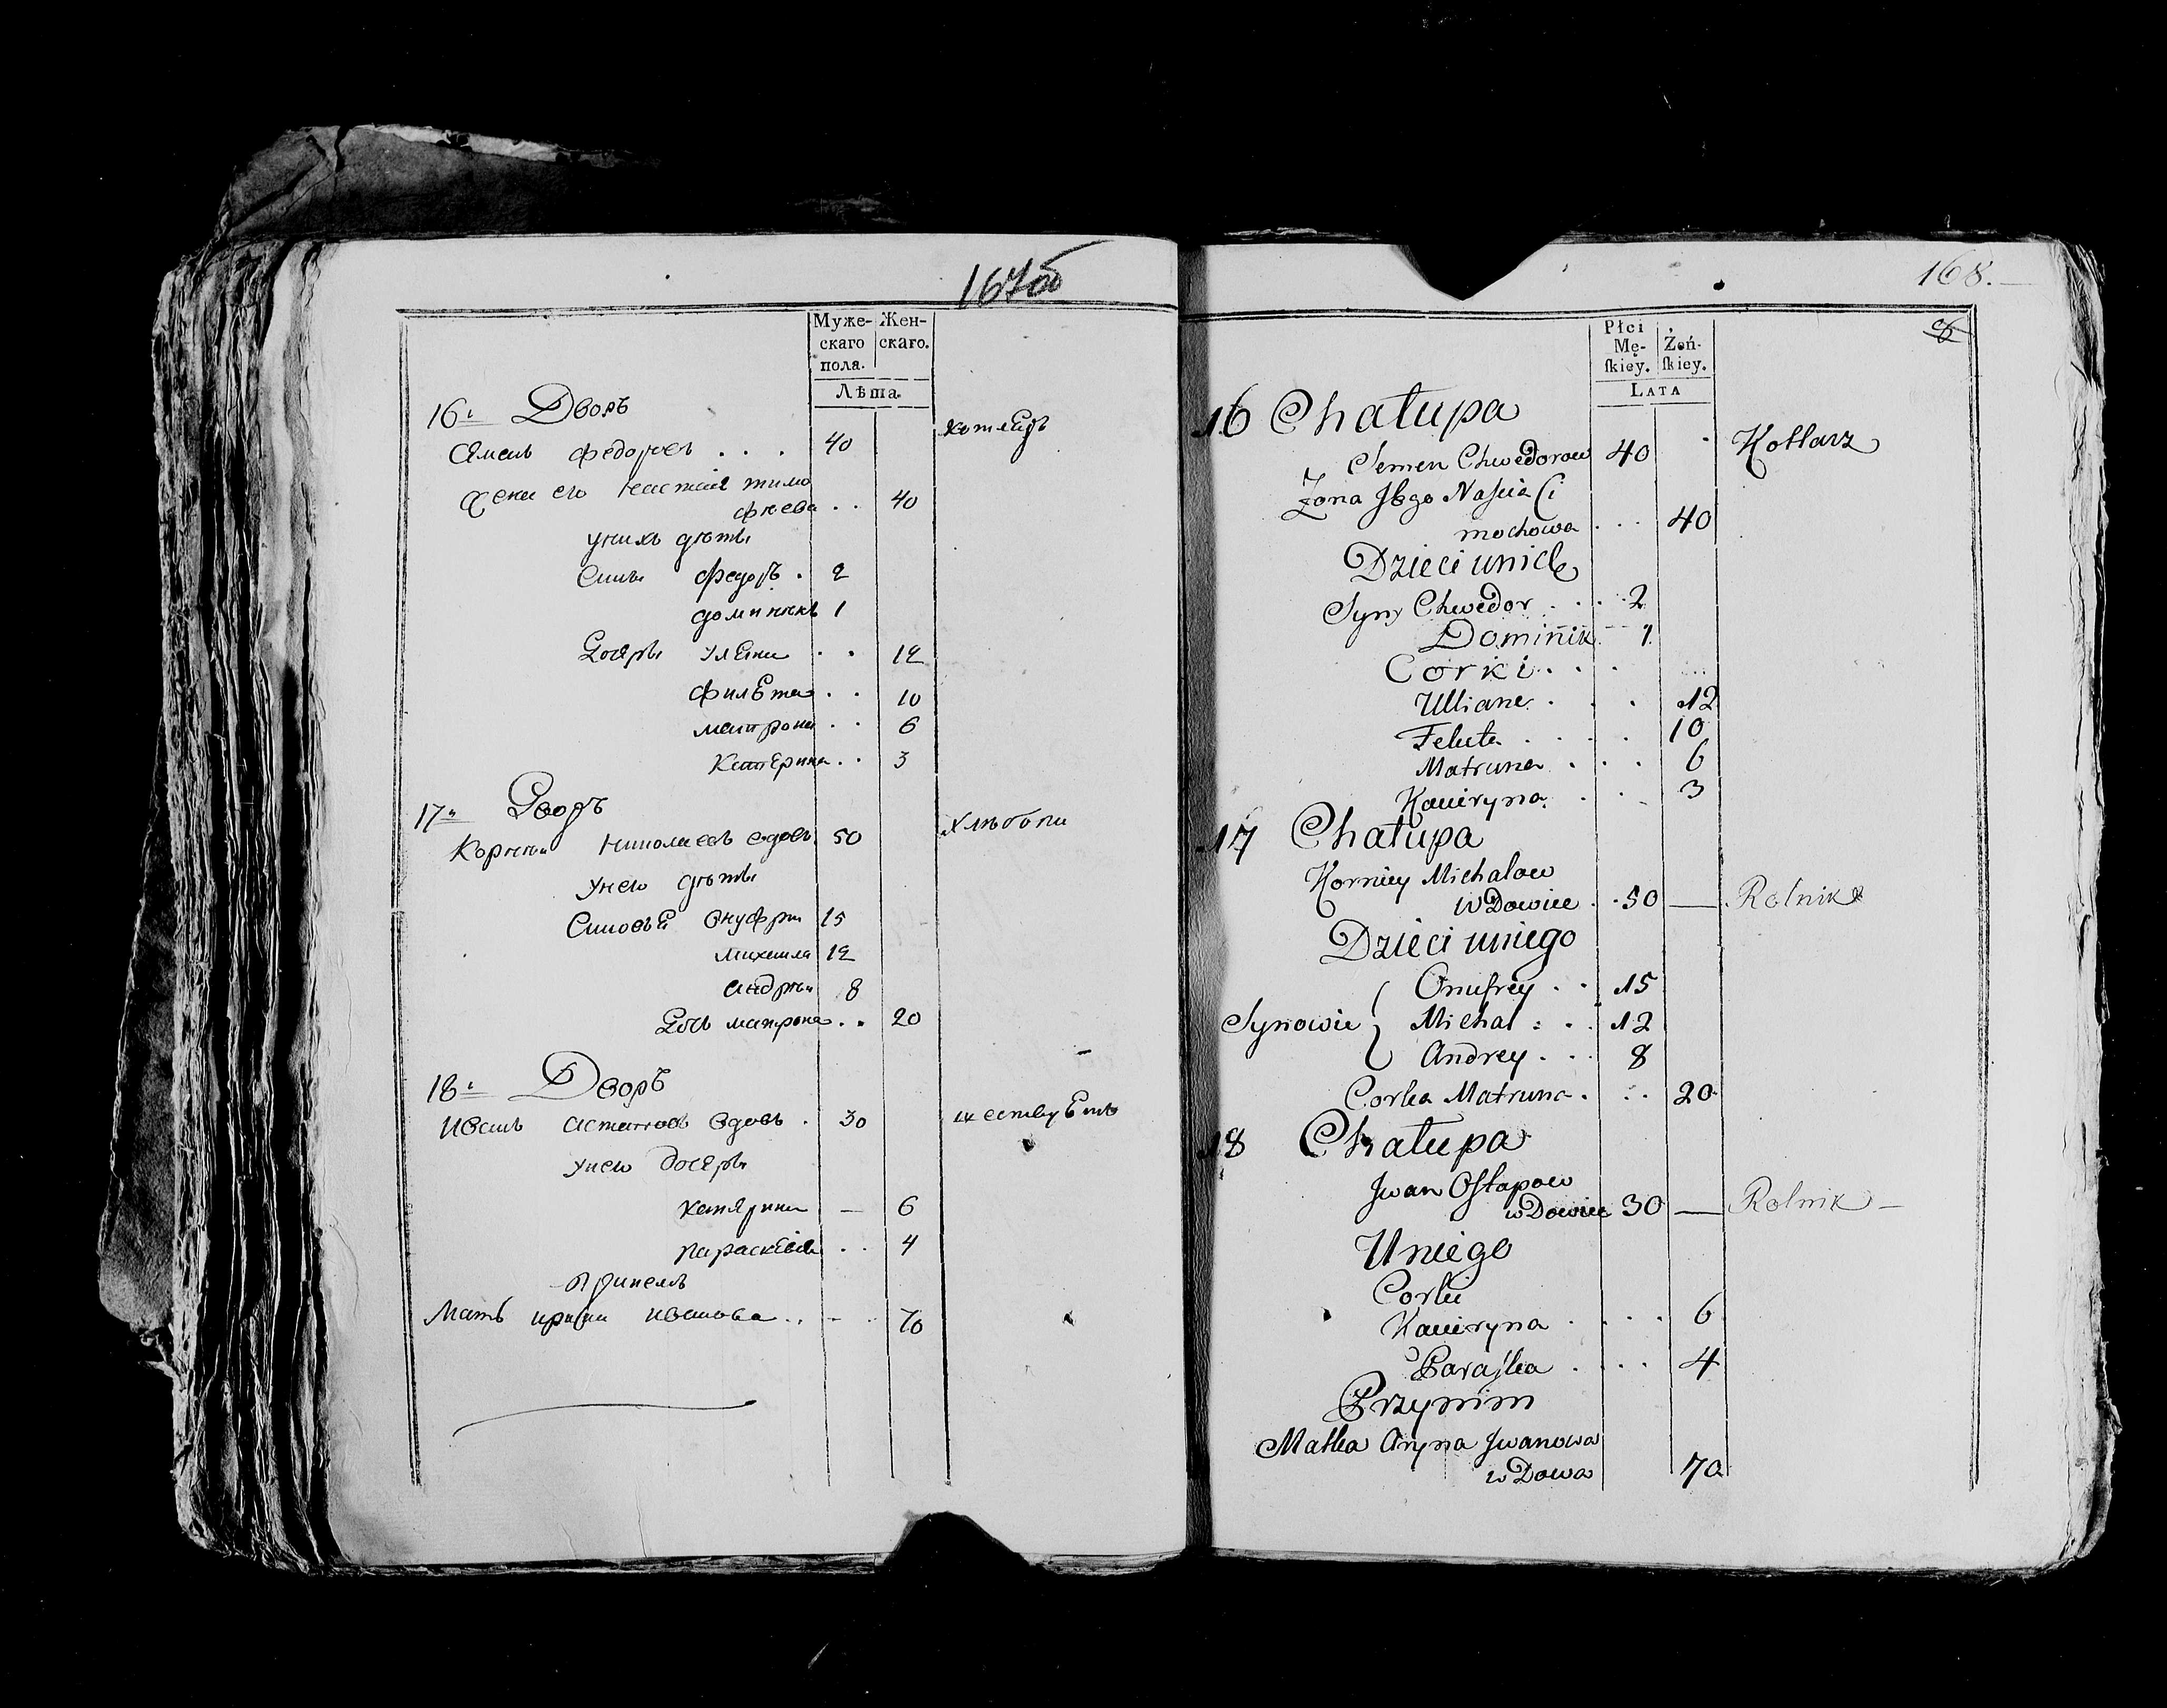 167об
Муже-
скаго
пола.
Жен-
скаго.
Лѣта.
16. Дворъ
Семенъ федоровъ . . . 40
Жена его Настасія тимо
фѣева . . 40
унихъ дѣти
Сины федоръ . 2
доминикъ 1
Дочери улЕяна . . 12
филЕта . . 10
матрона . . 6
КатЕрина . . 3
17. Дворъ
Корнѣи вдовъ 50
унего дѣти
СиновьЕ Онуфри 15
михаила 12
андрѣи 8
Дочь матрона . . 20
18. Дворъ
Иванъ астапов вдовъ . 30
унего дочери
катярина — 6
параскЕвия . . 4
при немъ
Мать ирина иванова . . 70
168.
Płci
Mę-
ſkiey.
Żeń-
ſkiey.
LATA
16 Chałupa
Semen Chwedorow 40 Kotlarz
Zona Jego Naścia Ci
mochowa . . . 40
Dzieci unich
Syny Chwedor . . . 2
Dominik 1
Corki . . .
Ulliana . . . 12
Feluta . . . . 10
Matruna . . . 6
Kaciryna . . . 3
17 Chałupa
Korniey Michałow
wDowiec . . 50 — Rolnik
Dzieci uniego
Onufrey . . 15
Synowie Michał . . 12
Andrey . . . 8
Corka Matruna . . . 20
18 Chałupa
Jwan Oſtapow
wDowiec 30 — Rolnik —
Uniego
Corki
Kaciryna . . . . 6
Paraſka . . . . 4
Przynim
Matka Aryna Jwanowa
wDowa 70